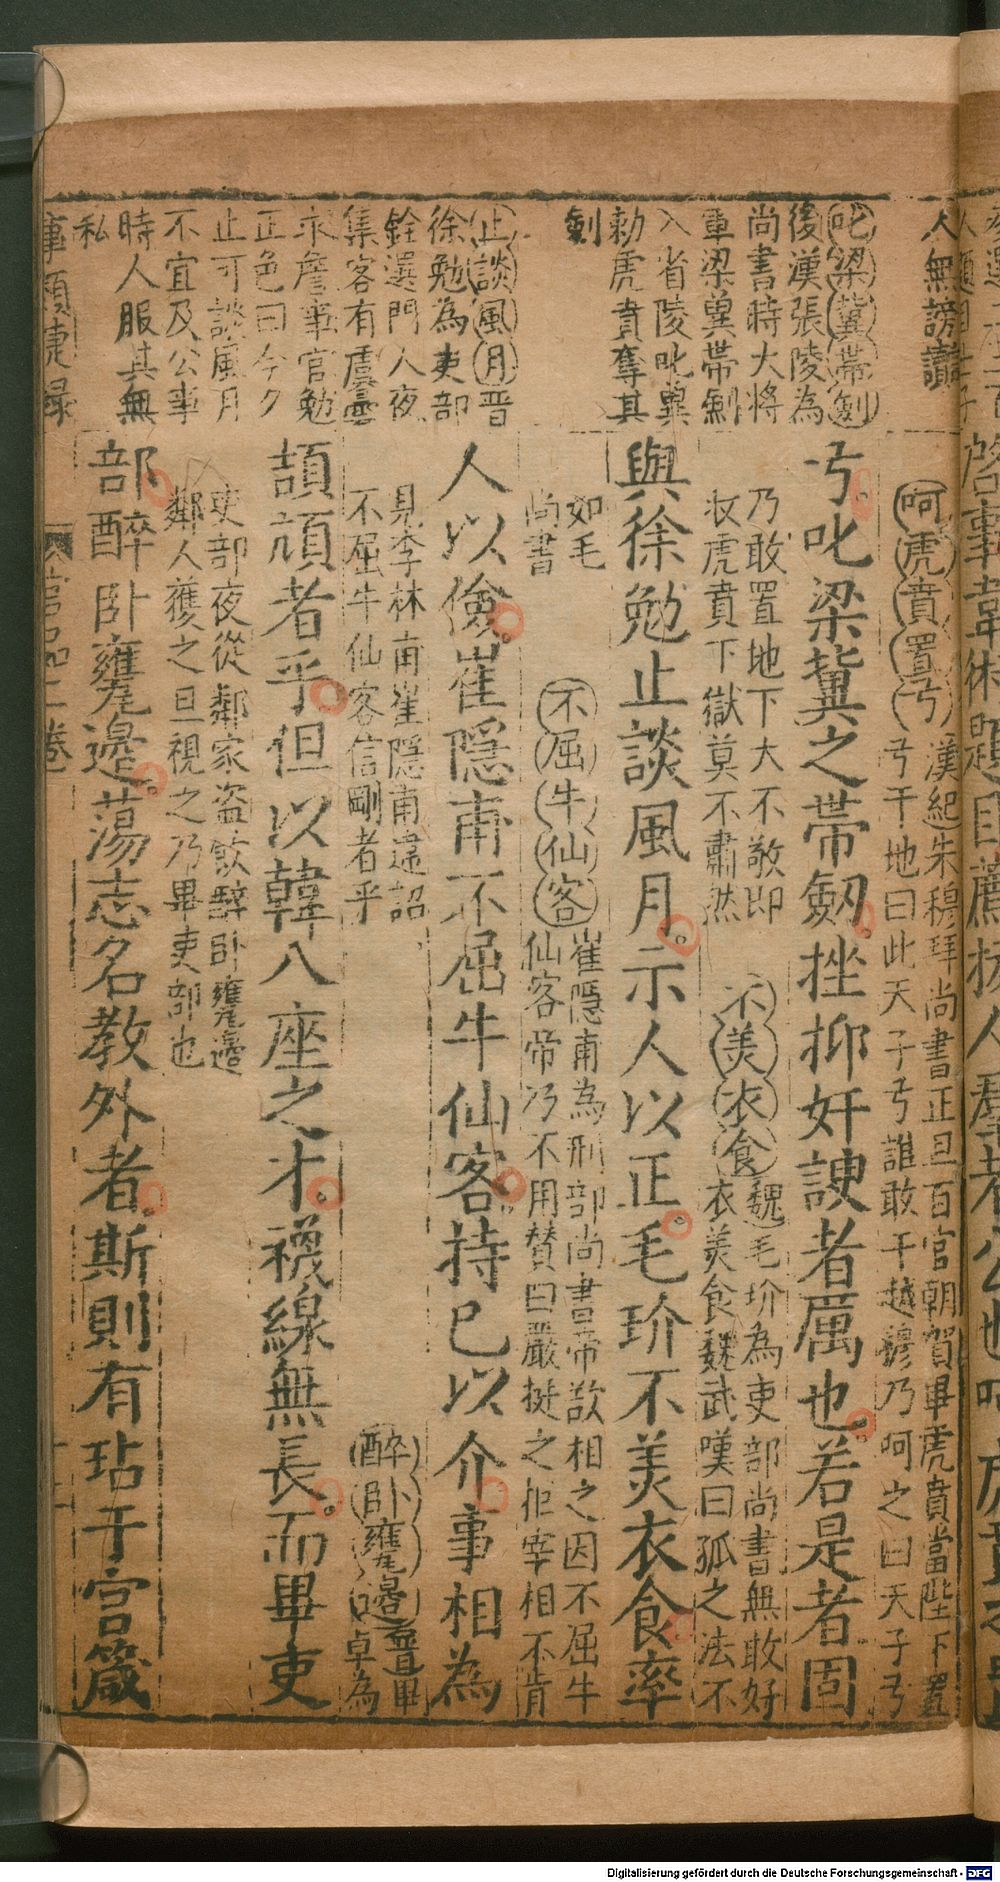 人無謗讟
叱梁冀帶劔
後漢張陵為
尚書時大將
軍梁冀帶劔
入省陵叱冀
勅虎賁奪其
劔
止談風月晉
徐勉為吏部
銓選門人夜
集客有虞暠
求詹事官勉
正色曰今夕
止可談風月
不宜及公事
時人服其無
私
呵虎賁置弓漢紀朱穆拜尚書正旦百官朝賀畢虎賁當陛下置
弓于地曰此天子弓誰敢干越穆乃呵之曰天子弓
弓叱梁冀之帶劔挫抑奸諛者厲也若是者固
乃敢置地下大不敬即
收虎賁下獄莫不肅然
不美衣食魏毛玠為吏部尚書無敢好
衣美食魏武嘆曰孤之法不
與徐勉止談風月示人以正毛玠不美衣食率
如毛
尚書
不屈牛仙客崔隱甫為刑部尚書帝欲相之因不屈牛
仙客帝乃不用贊曰嚴挺之拒宰相不肯
人以儉崔隱甫不屈牛仙客持己以介事相為
見李林甫崔隱甫違詔
不屈牛仙客信剛者乎
醉卧甕邊晋畢
卓為
頡頏者乎但以韓八座之才襪線無長而畢吏
吏部夜從鄰家盗飲醉卧甕邊
鄰人獲之旦視之乃畢吏部也
部醉卧甕邊蕩志名教外者斯則有玷于官箴
事類捷録
卷
Digitalisierung gefördert durch die Deutsche Forschungsgemeinschaft - DFG